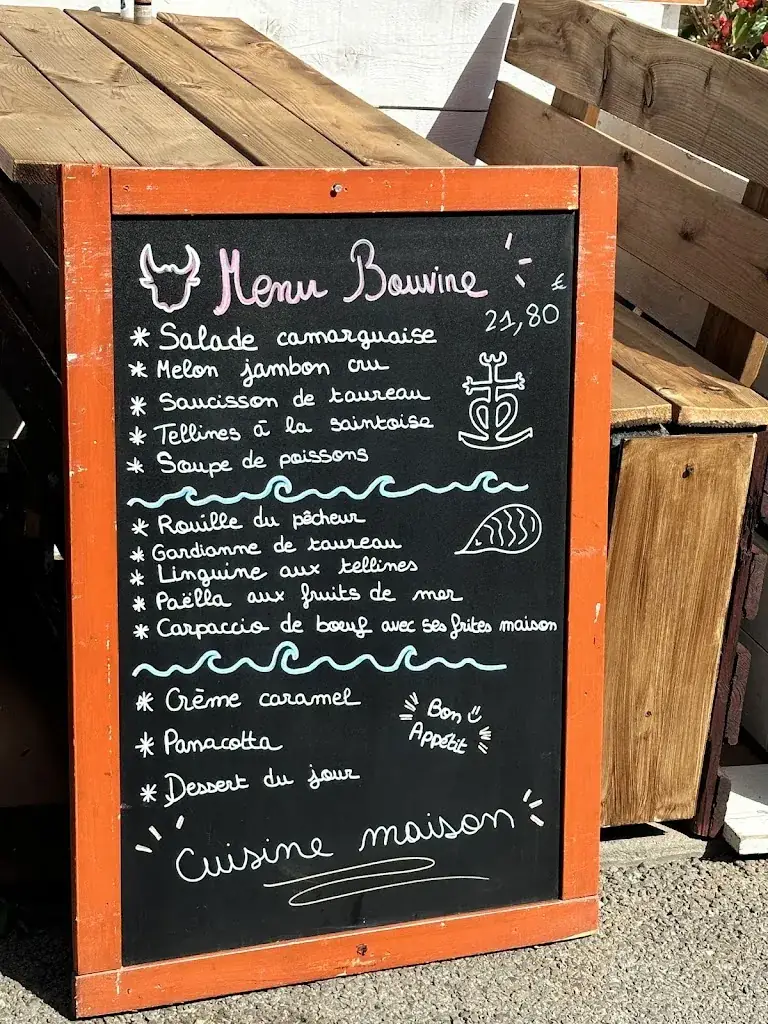 Menu Bouvine
€
21,80
* Salade camarguaise
* Melon jambon cru
* Saucisson de taureau
* Tellines à la saintoise
* Soupe de poissons
* Rouille du pêcheur
* Gardianne de taureau
* Linguine aux tellines
* Paëlla aux fruits de mer
* Carpaccio de boeuf avec ses frites maison
* Crème caramel
* Panacotta
* Dessert du jour
Bon
Appétit
Cuisine maison